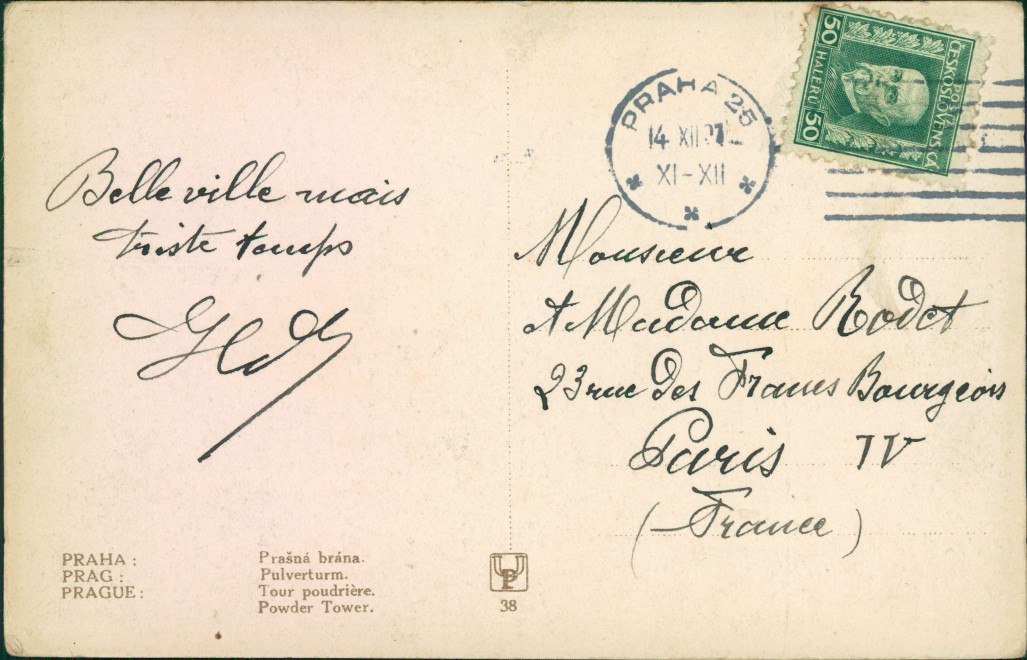 Belle ville mais
triste temps
PRAHA 25
14 XII 27
XI-XII
50 50
HALERU
POŠTA
ČESKOSLOVENSKÁ
Monsieur
et Madame Rodet
23 rue des Francs Bourgeois
Paris IV
(France)
PRAHA: Prašná brána.
PRAG: Pulverturm.
PRAGUE: Tour poudrière.
Powder Tower.
UP
38